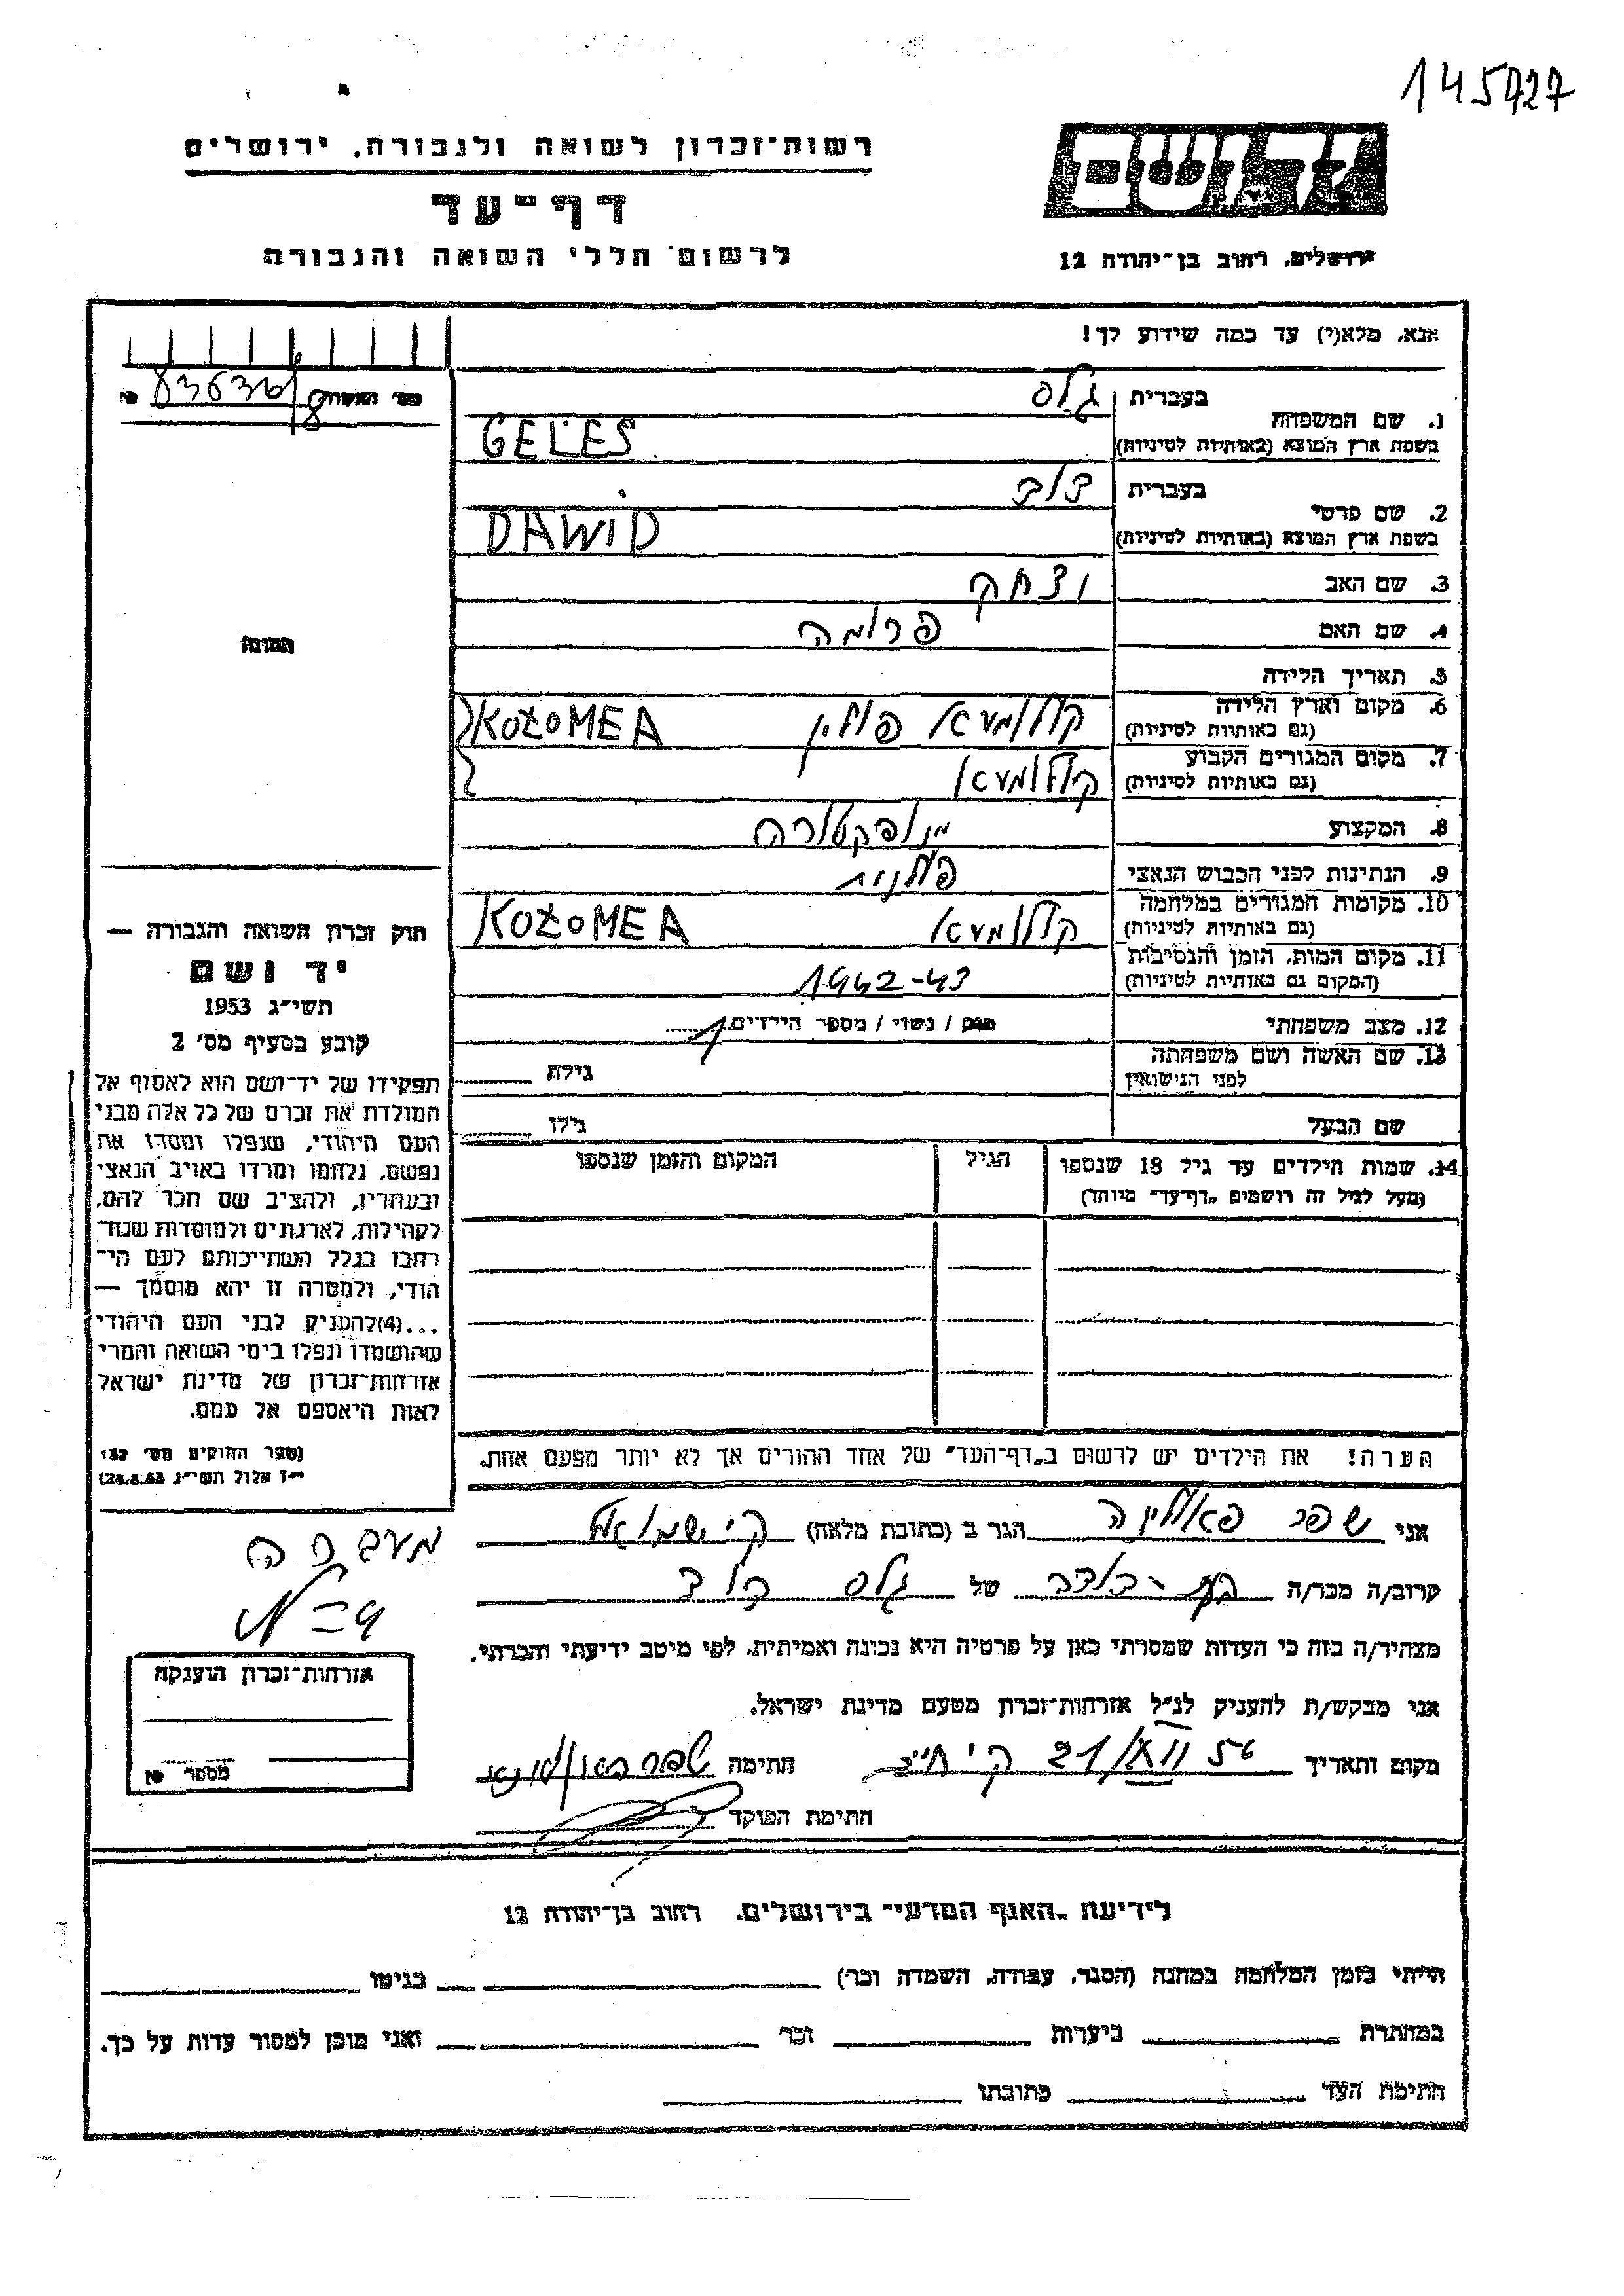 145727
רשות־זכרון לשואה ולגבורה, ירושלים
דף־עד
לרשום חללי השואה והגבורה
ירושלים, רחוב בן־יהודה 12
אנא, מלא(י) עד כמה שידוע לך!
1. שם המשפחה בעברית גלס
בשפת ארץ המוצא (באותיות לטיניות) GELES
2. שם פרטי בעברית דוד
בשפת ארץ המוצא (באותיות לטיניות) DAWID
3. שם האב יצחק
4. שם האם פרומה
5. תאריך הלידה
6. מקום וארץ הלידה (גם באותיות לטיניות) קולומעא פולין KOŁOMEA
7. מקום המגורים הקבוע (גם באותיות לטיניות) קולומעא
8. המקצוע מנופקטורה
9. הנתינות לפני הכבוש הנאצי פולנית
10. מקומות המגורים במלחמה (גם באותיות לטיניות) קולומעא KOŁOMEA
11. מקום המות, הזמן והנסיבות (המקום גם באותיות לטיניות) 1942-43
12. מצב משפחתי רווק / נשוי / מספר הילדים 1
13. שם האשה ושם משפחתה לפני הנישואין גילה
שם הבעל גילו
14. שמות הילדים עד גיל 18 שנספו הגיל המקום והזמן שנספו
(מעל לגיל זה רושמים „דף־עד" מיוחד)
הערה! את הילדים יש לרשום ב„דף־העד" של אחד ההורים אך לא יותר מפעם אחת.
תמונה
חוק זכרון השואה והגבורה —
יד ושם
תשי"ג 1953
קובע בסעיף מס' 2
תפקידו של יד־ושם הוא לאסוף אל
המולדת את זכרם של כל אלה מבני
העם היהודי, שנפלו ומסרו את
נפשם, נלחמו ומרדו באויב הנאצי
ובעוזריו, ולהציב שם וזכר להם,
לקהילות, לארגונים ולמוסדות שנח־
רבו בגלל השתייכותם לעם הי־
הודי, ולמטרה זו יהא מוסמך —
...(4)להעניק לבני העם היהודי
שהושמדו ונפלו בימי השואה והמרי
אזרחות־זכרון של מדינת ישראל
לאות היאספם אל עמם.
(ספר החוקים מס' 132
י"ז אלול תשי"ג 28.8.53)
אני שפר פאולינה הגר ב (כתובת מלאה) ק. שמואל
מעברה
קרוב/ה מכר/ה בת-דודה של גלס דוד
מצהיר/ה בזה כי העדות שמסרתי כאן על פרטיה היא נכונה ואמיתית, לפי מיטב ידיעתי והכרתי.
אני מבקש/ת להעניק לנ"ל אזרחות־זכרון מטעם מדינת ישראל.
מקום ותאריך ק. חיים חתימה
חתימת הפוקד
אזרחות־זכרון הוענקה
מספר №
לידיעת „האגף המדעי" בירושלים, רחוב בן־יהודה 12
הייתי בזמן המלחמה במחנה (הסגר, עבודה, השמדה וכו') בגיטו
במחתרת ביערות וכו' ואני מוכן למסור עדות על כך.
חתימת העד כתובתו